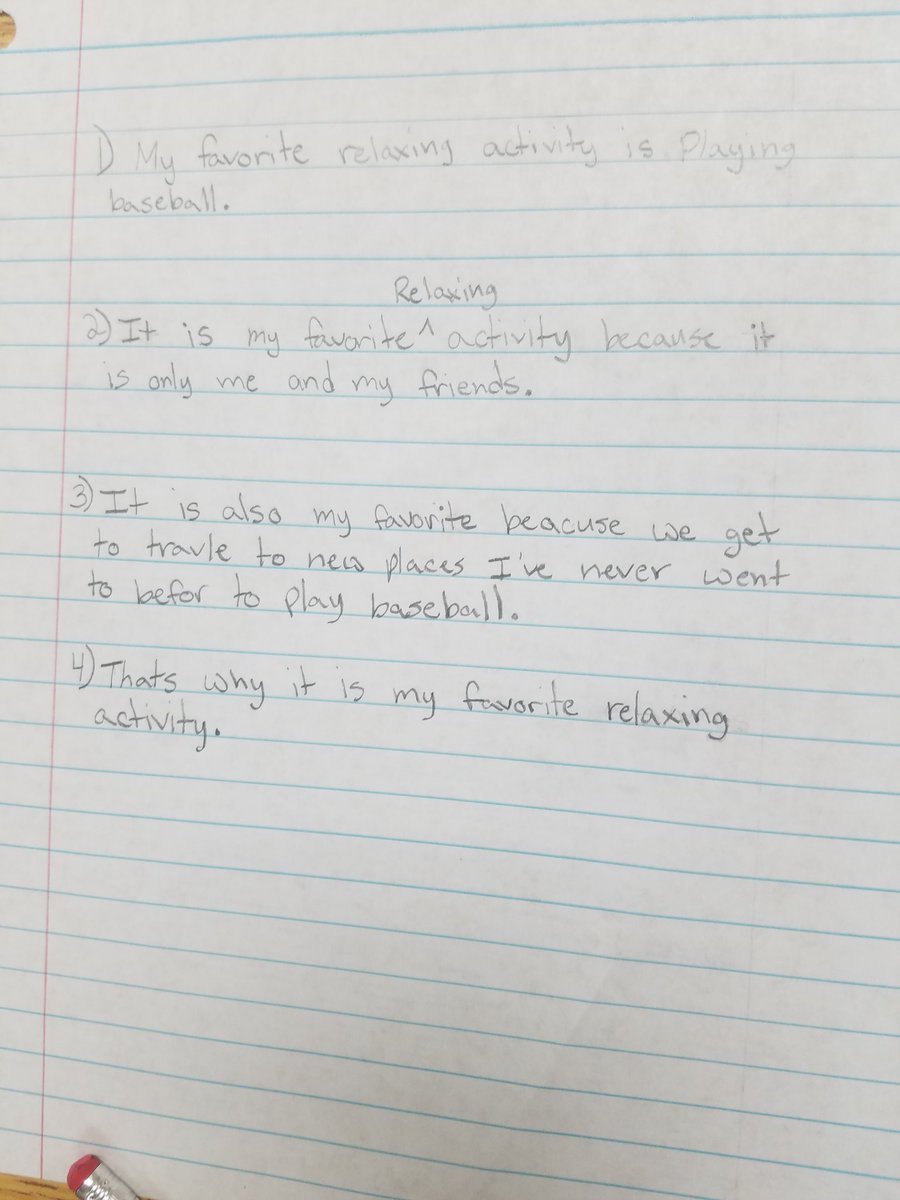 1) My favorite relaxing activity is Playing
baseball.
Relaxing
2) It is my favorite ^ activity because it
is only me and my friends.
3) It is also my favorite beacuse we get
to travle to new places I've never went
to befor to play baseball.
4) Thats why it is my favorite relaxing
activity.